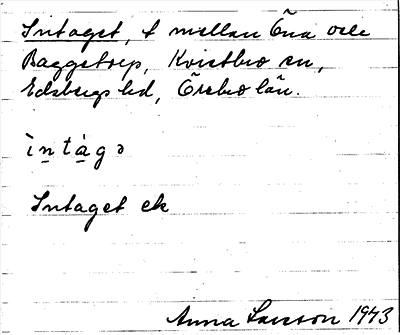 Intaget, t mellan Öna och
Baggetorp, Kvistbro sn,
Edsbergs hd, Örebro län.
ìntàgə
Intaget ek
Anna Larsson 1943